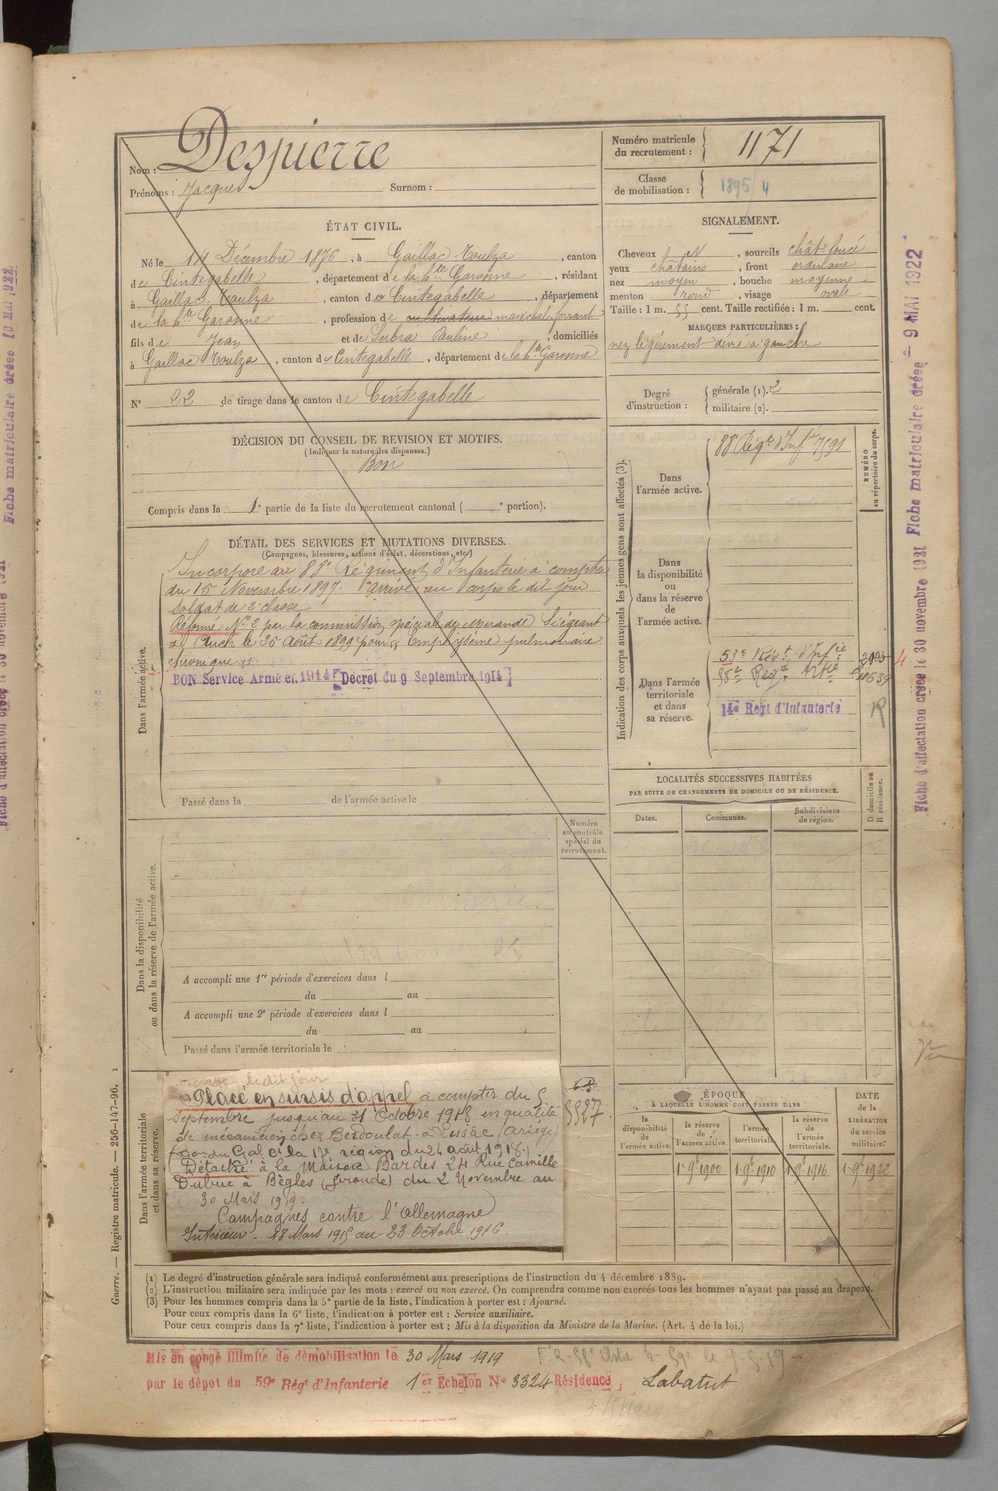 Nom : Despierre
Prénoms : Jacques Surnom :
Numéro matricule du recrutement : 1171
Classe de mobilisation : 1895/4
ÉTAT CIVIL.
Né le 14 Décembre 1876, à Gaillac-Toulza, canton
de Cintegabelle, département de la hte Garonne, résidant
à Gaillac-Toulza, canton de Cintegabelle, département
de la hte Garonne, profession de cultivateur maréchal ferrant
fils de Jean et de Subra Pauline, domiciliés
à Gaillac Toulza, canton de Cintegabelle, département de la hte Garonne
N° 22 de tirage dans le canton de Cintegabelle
SIGNALEMENT.
Cheveux N, sourcils chât foncé
yeux chatains, front ordinaire
nez moyen, bouche moyenne
menton rond, visage ovale
Taille : 1 m. 55 cent. Taille rectifiée : 1 m. cent.
MARQUES PARTICULIÈRES :
nez légèrement dévié à gauche
Degré d'instruction : générale (1). 2
militaire (2).
DÉCISION DU CONSEIL DE REVISION ET MOTIFS.
(Indiquer la nature des dispenses.)
Bon
Compris dans la 1e partie de la liste du recrutement cantonal ( e portion).
DÉTAIL DES SERVICES ET MUTATIONS DIVERSES.
(Campagnes, blessures, actions d'éclat, décorations, etc.)
Dans l'armée active.
Incorporé au 88e Régiment d'Infanterie à compter
du 15 Novembre 1897. Arrivé au Corps le dit jour
soldat de 2e classe
Réformé N° 2 par la commission spéciale de Mirande Siégeant
à Auch le 25 Août 1899 pour emphysème pulmonaire
chronique
BON Service Armé en 1914 Décret du 9 Septembre 1914
Passé dans la de l'armée active le
Indication des corps auxquels les jeunes gens sont affectés (3).
NUMÉRO au répertoire du corps.
Dans l'armée active.
88e Régt d'Infie 7591
Dans la disponibilité ou dans la réserve de l'armée active.
Dans l'armée territoriale et dans sa réserve.
53e Régt d'Infie
58e Régt Artie
14e Régt d'Infanterie R
LOCALITÉS SUCCESSIVES HABITÉES
PAR SUITE DE CHANGEMENTS DE DOMICILE OU DE RÉSIDENCE.
Dates. Communes. Subdivisions de région. D domicile ou R résidence.
Dans la disponibilité ou dans la réserve de l'armée active.
Numéro au contrôle spécial du recrutement.
A accompli une 1re période d'exercices dans l
du au
A accompli une 2e période d'exercices dans l
du au
Passé dans l'armée territoriale le
Dans l'armée territoriale et dans sa réserve.
le dit jour
Placé en sursis d'appel à compter du 5
Septembre jusqu'au 31 Octobre 1918 en qualité
de mécanicien chez Berdoulat à Lissac (Ariège)
(ordre du Gal Ct la 17e région du 24 août 1918)
Détaché à la Maison Bardes 24 Rue Camille
Dubrue à Bègles (Gironde) du 2 Novembre au
30 Mars 1919.
Campagnes contre l'Allemagne
Intérieur - 18 Mars 1915 au 23 Octobre 1916.
5527
ÉPOQUE
À LAQUELLE L'HOMME DOIT PASSER DANS
la disponibilité de l'armée active. la réserve de l'armée active. l'armée territoriale. la réserve de l'armée territoriale.
DATE de la LIBÉRATION du service militaire.
1er 9e 1900 1er 9e 1910 1er 9e 1916 1er 9e 1922
(1) Le degré d'instruction générale sera indiqué conformément aux prescriptions de l'instruction du 4 décembre 1889.
(2) L'instruction militaire sera indiquée par les mots : exercé ou non exercé. On comprendra comme non exercés tous les hommes n'ayant pas passé au drapeau.
(3) Pour les hommes compris dans la 5e partie de la liste, l'indication à porter est : Ajourné.
Pour ceux compris dans la 6e liste, l'indication à porter est : Service auxiliaire.
Pour ceux compris dans la 7e liste, l'indication à porter est : Mis à la disposition du Ministre de la Marine. (Art. 4 de la loi.)
Mis en congé illimité de démobilisation le 30 Mars 1919
par le dépot du 59e Régt d'Infanterie 1er Echelon N° 3324 Résidence, Labatut
Guerre. — Registre matricule. — 256-147-96.
Fiche d'affectation créée le 30 novembre 1921 Fiche matriculaire créée - 9 MAI 1922
Fiche matriculaire créée 10 MAI 1922